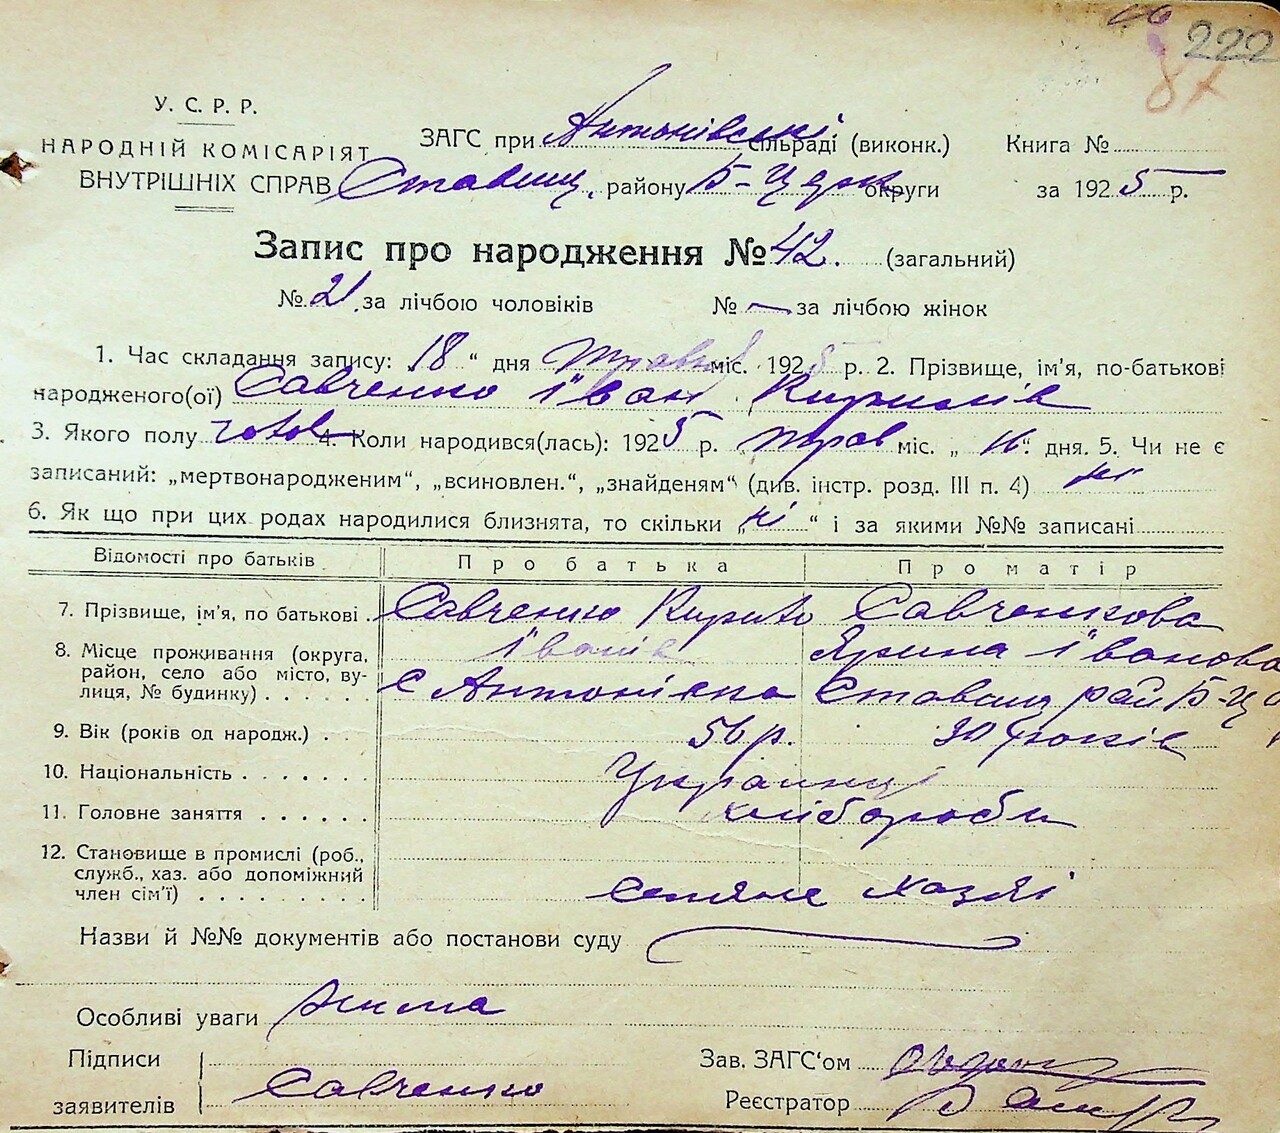 222
87
У. С. Р. Р.
НАРОДНІЙ КОМІСАРІЯТ
ВНУТРІШНІХ СПРАВ
ЗАГС при Антонівські сільраді (виконк.) Книга №
Ставищ. району Б-Церк округи за 1925 р.
Запис про народження № 42. (загальний)
№ 21 за лічбою чоловіків № — за лічбою жінок
1. Час складання запису: 18 " дня Травня міс. 1925 р. 2. Прізвище, ім'я, по-батькові
народженого(ої) Савченко Іван Кирилів
3. Якого полу чолов 4. Коли народився(лась): 1925 р. трав міс. „ 16 " дня. 5. Чи не є
записаний: „мертвонародженим", „всиновлен.", „знайденям" (див. інстр. розд. III п. 4) ні
6. Як що при цих родах народилися близнята, то скільки „ ні " і за якими №№ записані
Відомості про батьків Про батька Про матір
7. Прізвище, ім'я, по батькові Савченко Кирило Савченкова
Іванів Ярина Іванова
8. Місце проживання (округа, район, село або місто, вулиця, № будинку) с Антонівка Ставищ рай Б-Ц
9. Вік (років од народж.) 56 р. 30 років
10. Національність Українці
11. Головне заняття хлібороби
12. Становище в промислі (роб., служб., хаз. або допоміжний член сім'ї) селяне хазяї
Назви й №№ документів або постанови суду
Особливі уваги Нима
Підписи
заявителів Савченко
Зав. ЗАГС'ом
Реєстратор